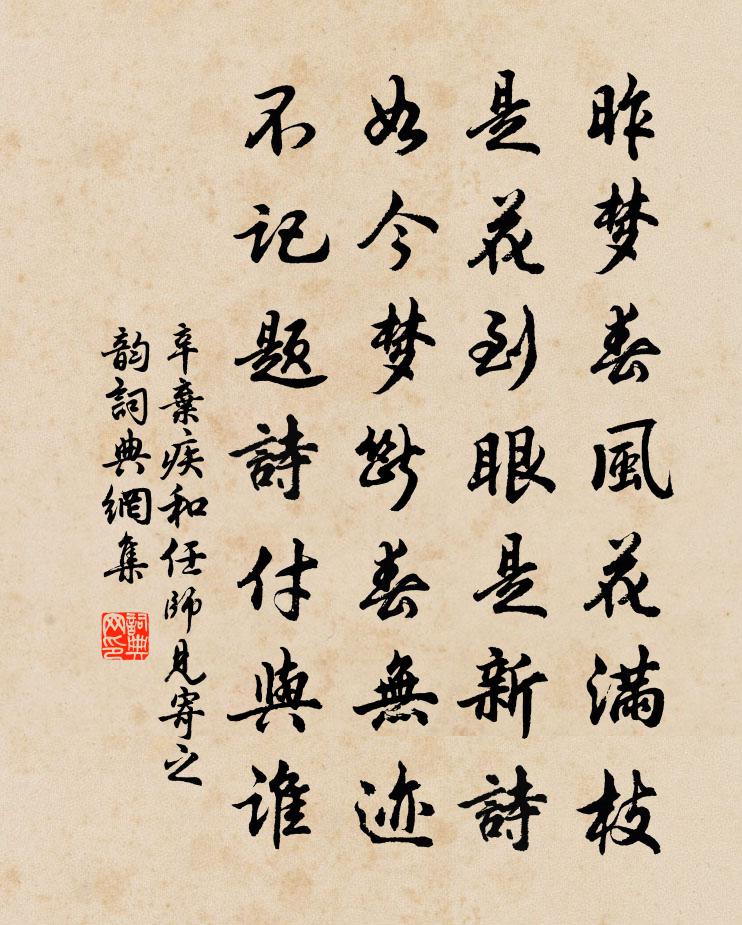 昨梦春风花满枝
是花到眼是新詩
如今梦断春無迹
不记题詩付與谁
辛棄疾和任師見寄之
韵詞典網集
詞典网印